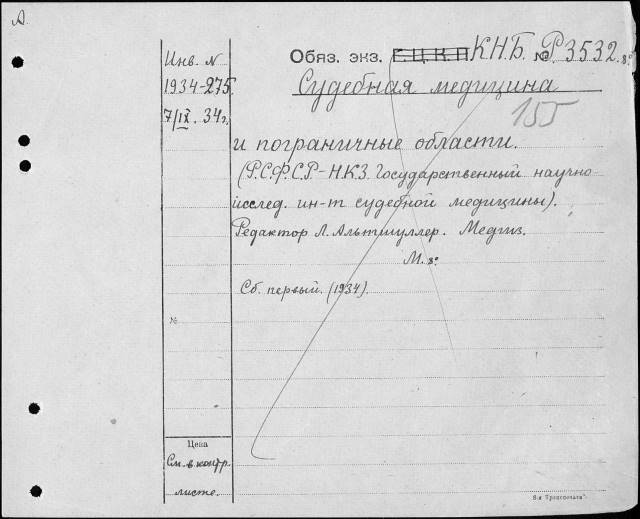 А.
Инв. N
1934-275.
7/IX. 34г.
Обяз. экз. Г.Ц.К.П К.Н.Б. № Р3532.8°
Судебная медицина
155
и пограничные области.
(Р.С.Ф.С.Р-Н.К.З. Государственный научно-
исслед. ин-т судебной медицины).
Редактор Л. Альтшуллер. Медгиз.
М. 8°.
Сб. первый. (1934).
№
Цена
См. в контр.
листе.
8-я "Транспечать".